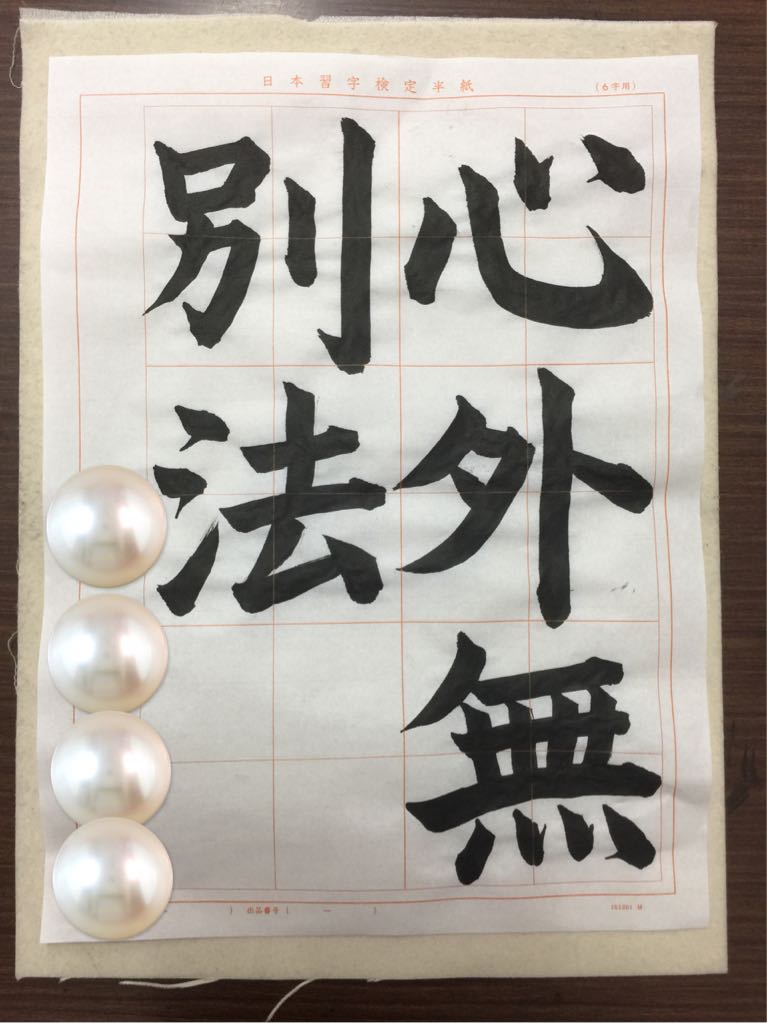 日本習字検定半紙
(6字用)
心外無
別法
) 出品番号 ( ー )